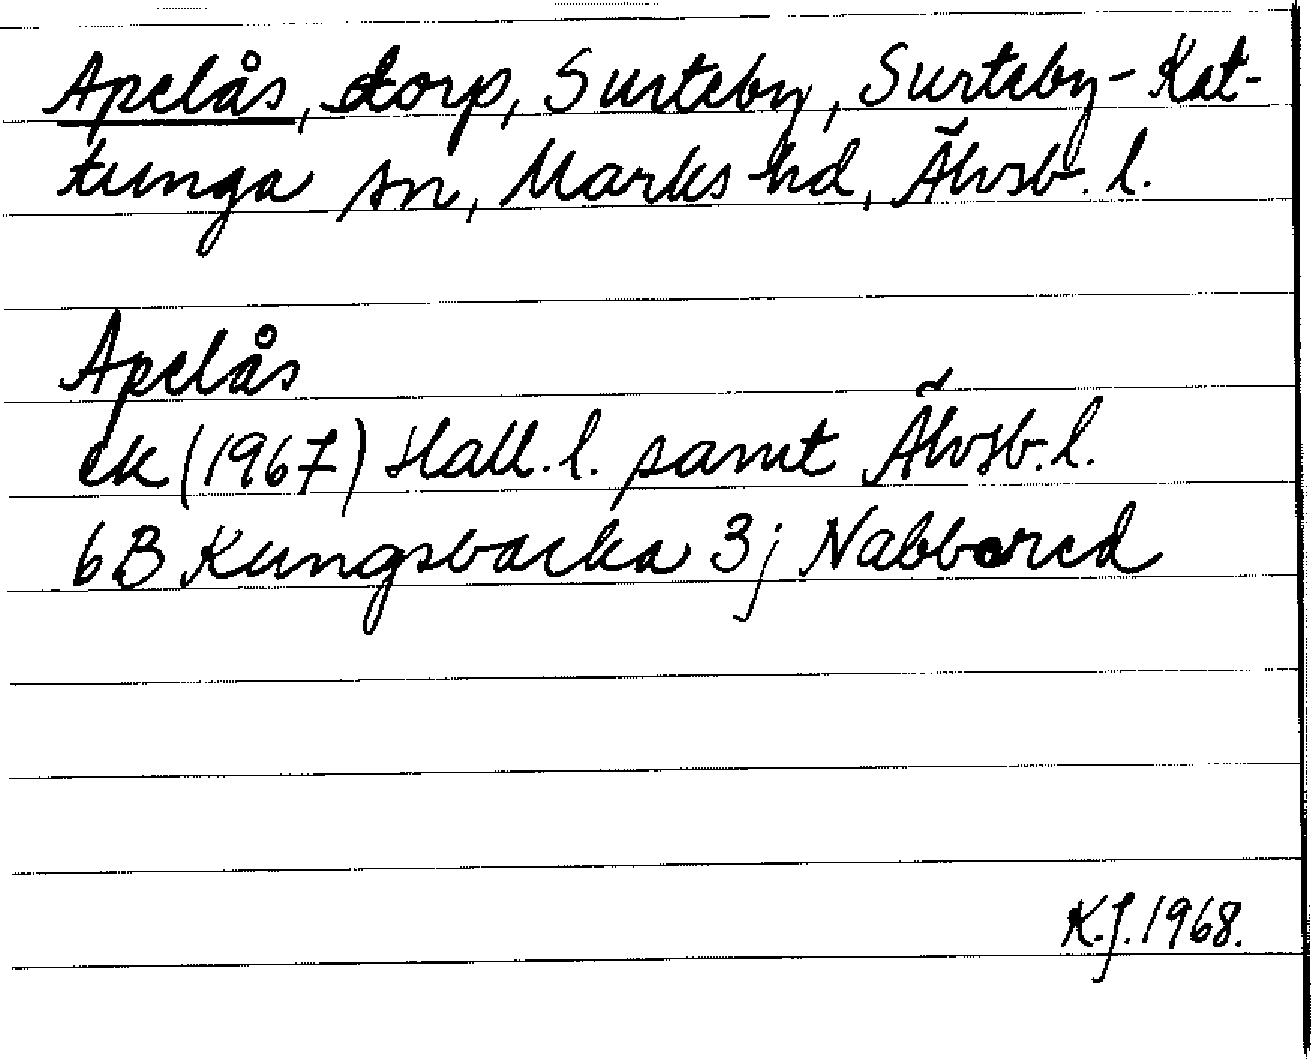 Apelås, torp, Surteby, Surteby-Kat-
tunga sn, Marks hd, Älvsb. l.
Apelås
ek (1967) Hall. l. samt Älvsb. l.
6B Kungsbacka 3j Nabbared
K.J. 1968.